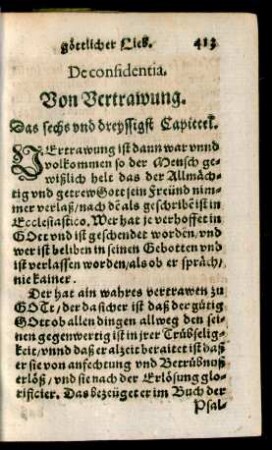 göttlicher Lieb. 413
De confidentia.
Von Vertrawung.
Das sechs vnd dreyssigst Capittel.
VErtrawung ist dann war vnnd
volkommen so der Mensch ge-
wißlich helt das der Allmäch-
tig vnd getrew Gott sein Freünd nim-
mer verlaß/ nach dē als geschribē ist in
Ecclesiastico. Wer hat je verhoffet in
GOtt vnd ist geschendet worden, vnd
wer ist beliben in seinen Gebotten vnd
ist verlassen worden/ als ob er spräch/
nie kainer.
Der hat ain wahres vertrawen zu
GOTt/ der da sicher ist daß der gütig
GOtt ob allen dingen allweg den sei-
nen gegenwertig ist in jrer Trübselig-
keit/ vnnd daß er alzeit beraitet ist daß
er sie von anfechtung vnd Betrübnuß
erlöß/ vnd sie nach der Erlösung glo-
rificier. Das bezeüget er im Buch der
Psal-